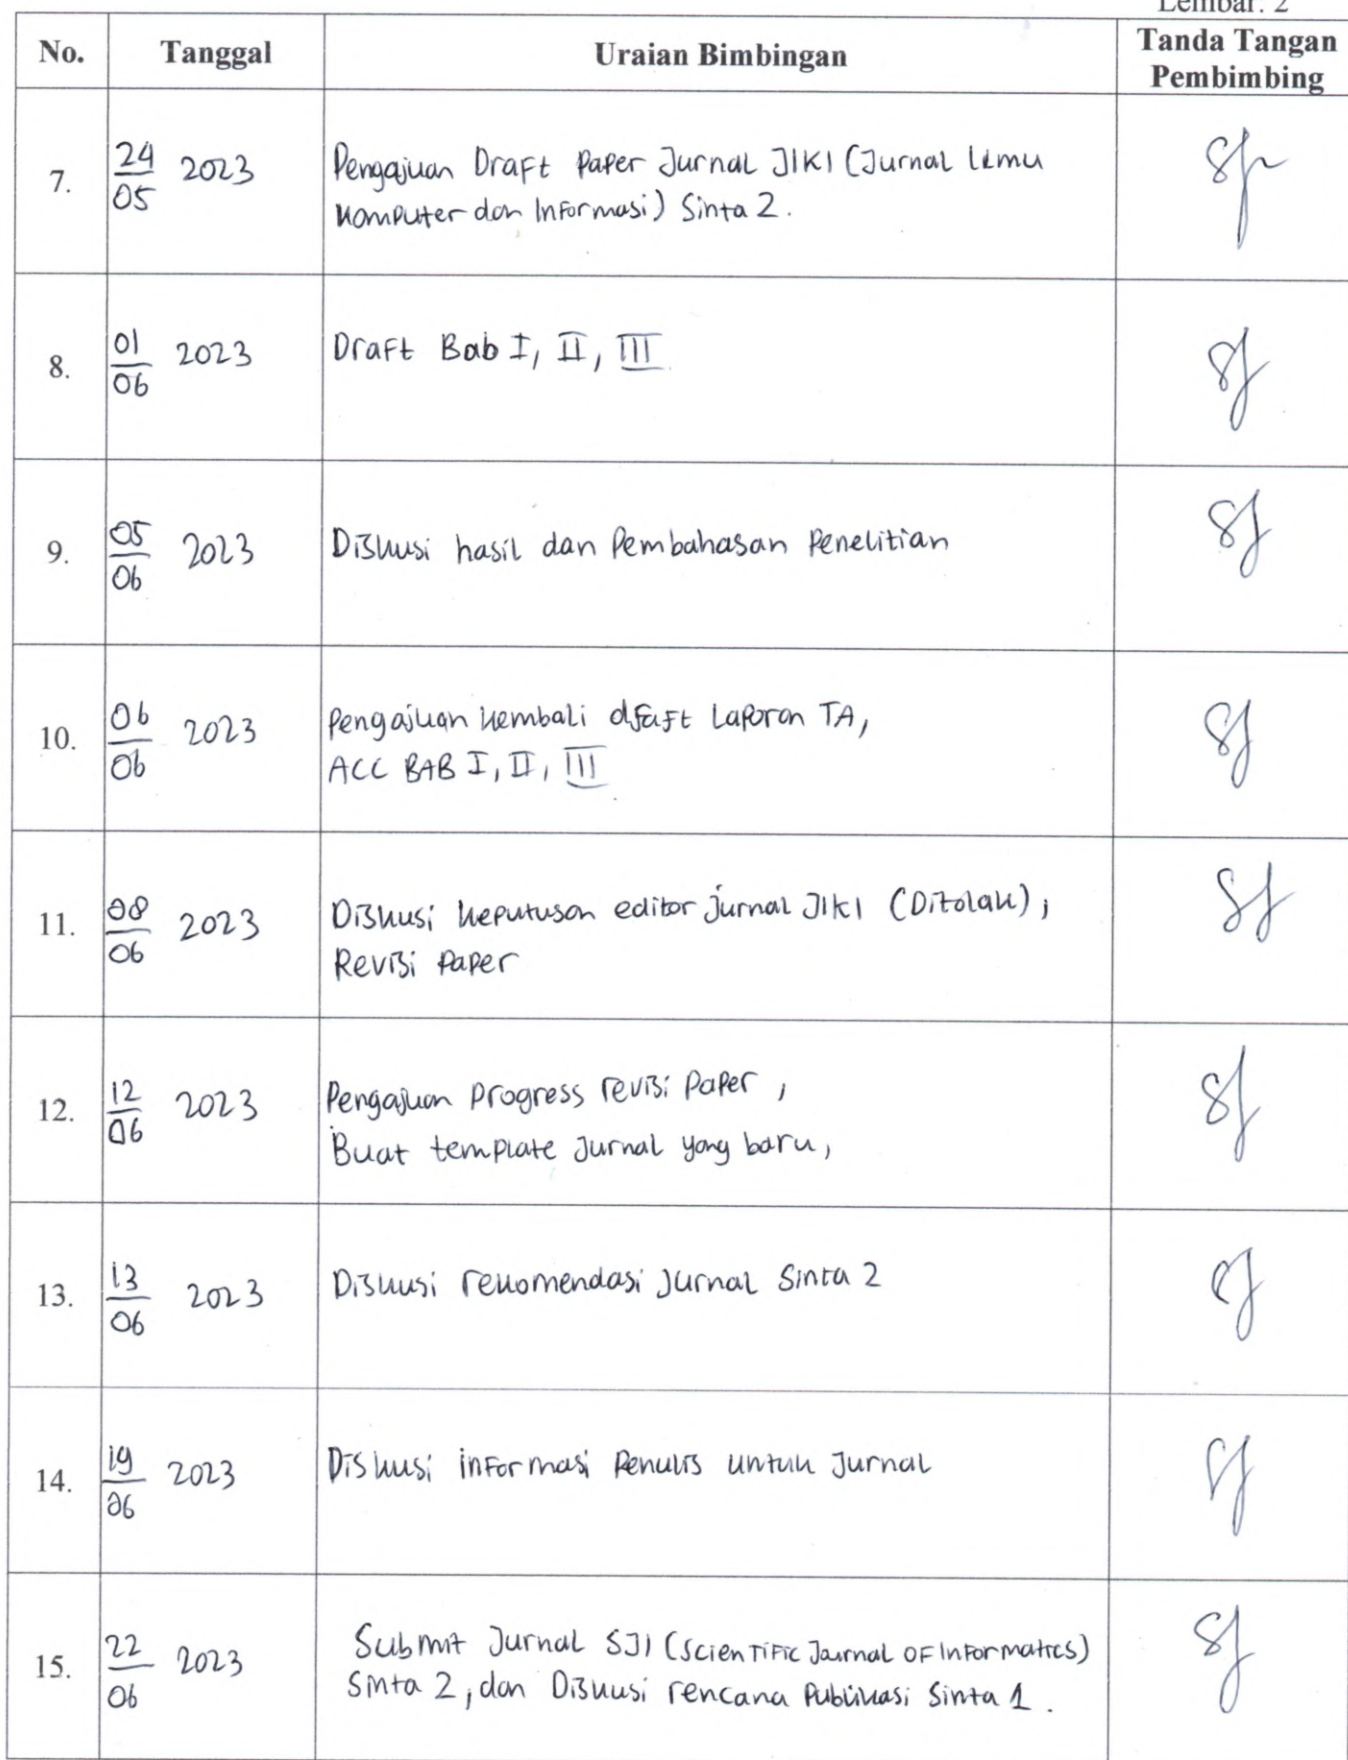 Lembar: 2
No. Tanggal Uraian Bimbingan Tanda Tangan
Pembimbing
7. 24/05 2023 Pengajuan Draft Paper Jurnal JIKI (Jurnal Ilmu
Komputer dan Informasi) Sinta 2.
8. 01/06 2023 Draft Bab I, II, III
9. 05/06 2023 Diskusi hasil dan Pembahasan Penelitian
10. 06/06 2023 Pengajuan kembali draft Laporan TA,
ACC BAB I, II, III
11. 08/06 2023 Diskusi keputusan editor jurnal JIKI (Ditolak);
Revisi Paper
12. 12/06 2023 Pengajuan Progress revisi Paper,
Buat template Jurnal yang baru,
13. 13/06 2023 Diskusi rekomendasi Jurnal Sinta 2
14. 19/06 2023 Diskusi informasi Penulis untuk Jurnal
15. 22/06 2023 Submit Jurnal SJI (Scientific Journal OF Informatics)
Sinta 2, dan Diskusi rencana Publikasi Sinta 1.